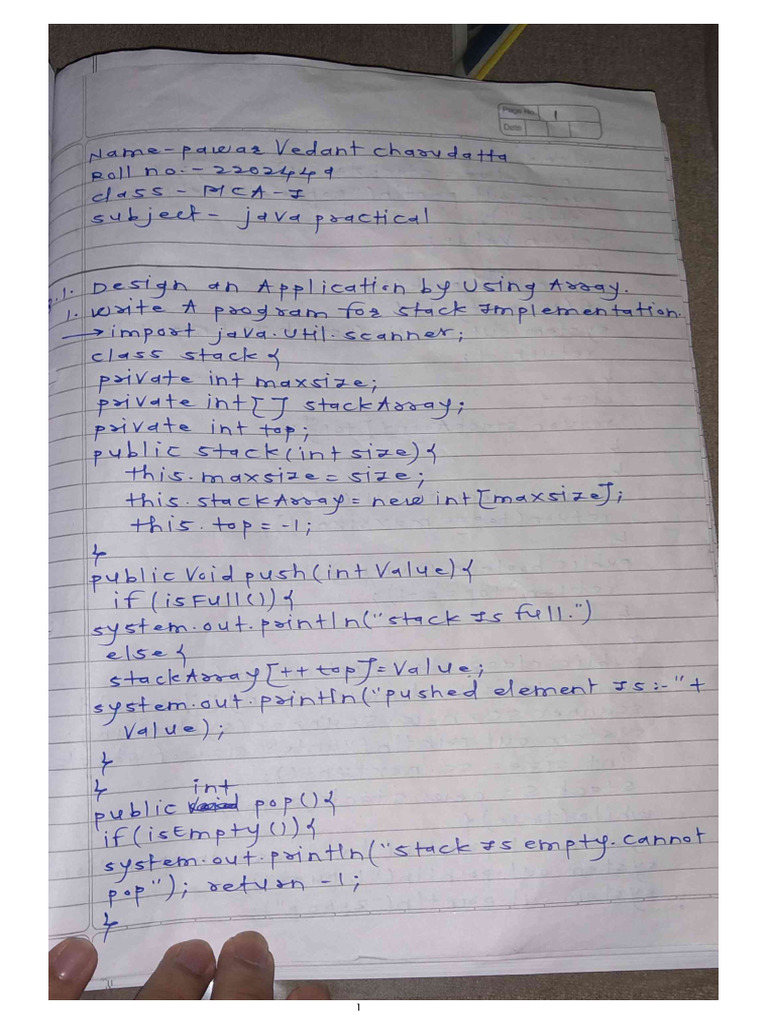 Page No. 1
Date
Name - Pawar Vedant Charudatta
Roll no. - 2202449
class - MCA-I
subject - java practical
Q.1. Design an Application by Using Array.
1. Write A program for Stack Implementation.
→ import java.util.scanner;
class stack {
private int maxsize;
private int[] stackArray;
private int top;
public stack(int size) {
this.maxsize = size;
this.stackArray = new int[maxsize];
this.top = -1;
}
public void push(int value) {
if (isFull()) {
system.out.println("stack Is full.")
else {
stackArray[++top] = value;
system.out.println("pushed element Is :- " +
value);
}
}
public int pop() {
if (isEmpty()) {
system.out.println("stack Is empty. cannot
pop"); return -1;
}
1